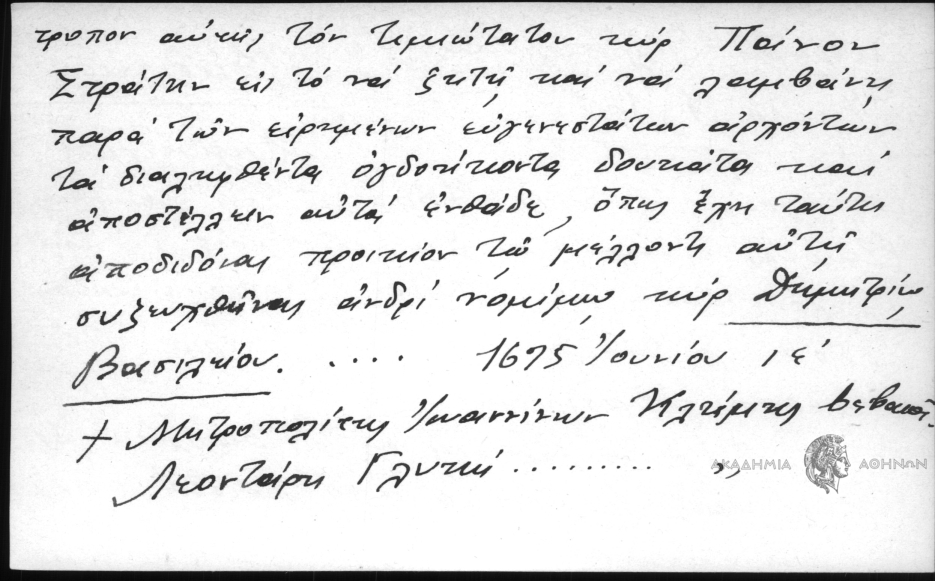 τροπον αὐτῆς τόν τιμιώτατον κύρ Πάϊνον
Στράτην εἰς τό νά ζητῇ καί νά λαμβάνῃ
παρά τῶν εἰρημένων εὐγενεστάτων ἀρχόντων
τά διαληφθέντα ὀγδοήκοντα δουκάτα καί
ἀποστέλλειν αὐτά ἐνθάδε, ὅπως ἔχῃ ταύτης
ἀποδιδόναι προικίον τῷ μέλλοντι αὐτῇ
συζευχθῆναι ἀνδρί νομίμῳ κύρ Δημητρίῳ
Βασιλείου. .... 1675 Ἰουνίου ιε΄
+ Μητροπολίτης Ἰωαννίνων Κλήμης βεβαιοῖ.
Λεοντάρη Γλυκῆ ......... "
ΑΚΑΔΗΜΙΑ ΑΘΗΝΩΝ